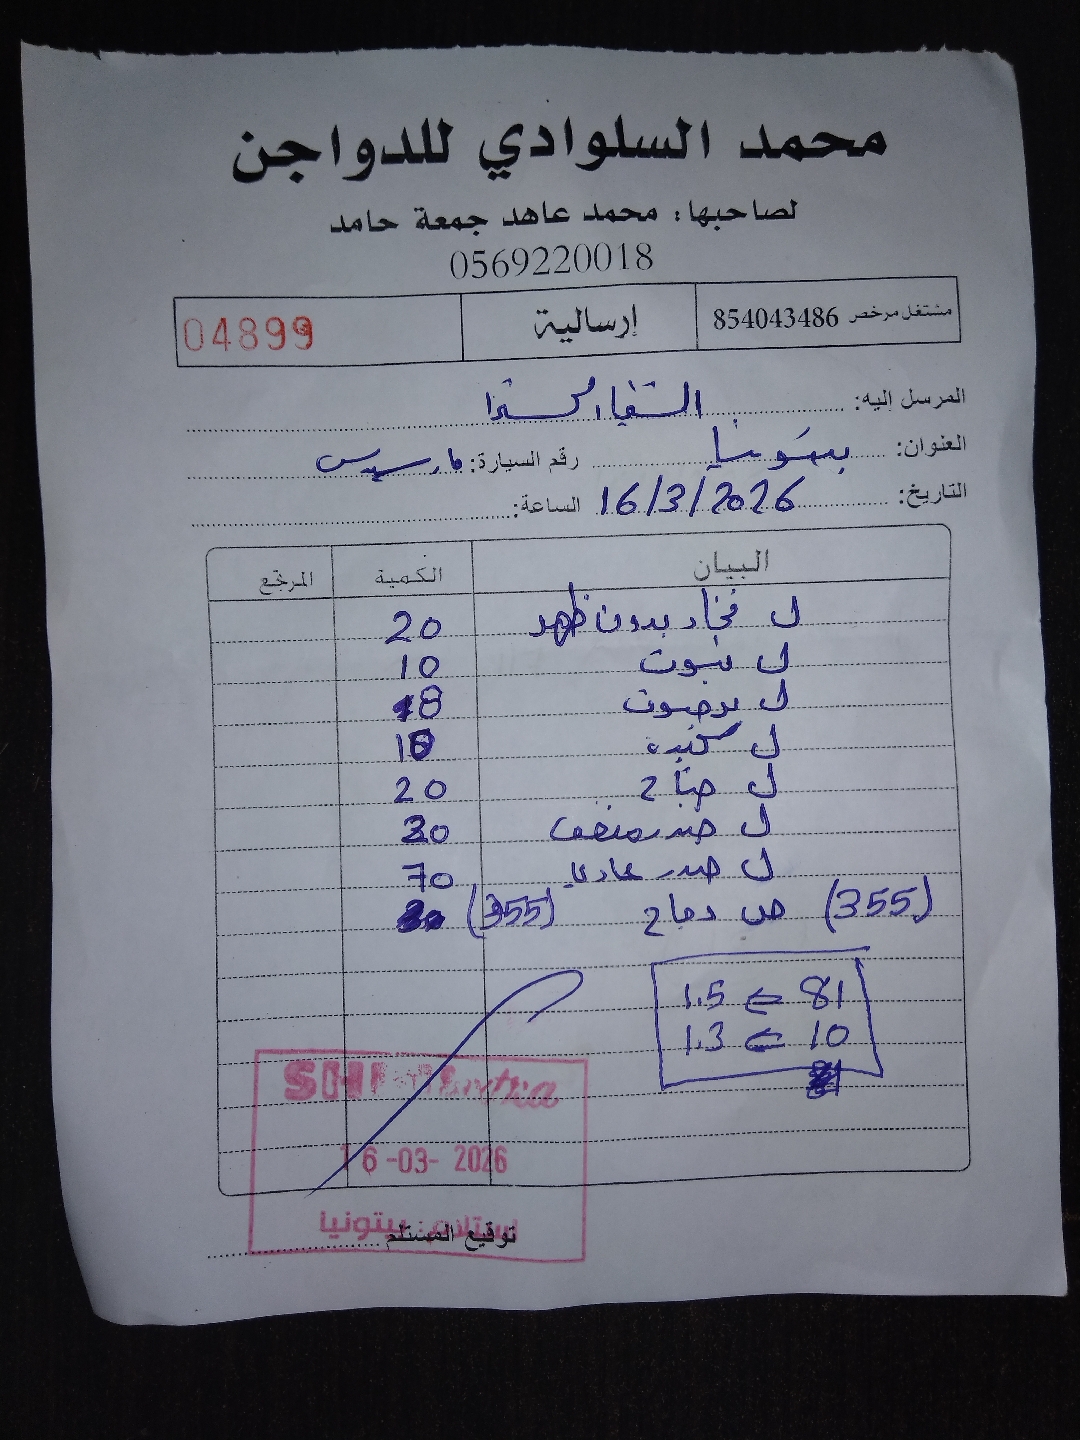 محمد السلوادي للدواجن
لصاحبها: محمد عاهد جمعة حامد
0569220018
مشتغل مرخص 854043486 إرسالية 04899
المرسل اليه: الشفاء اكسترا
العنوان: بيتونيا رقم السيارة: مارسيدس
التاريخ: 16/3/2026 الساعة:
البيان الكمية المرتجع
ل فخاد بدون ظهر 20
ل 10
ل 18
ل كبدة
ل 20
ل صدر منصف
ل صدر عادي 70
(355) دجاج (355)
81 ⇐ 1.5
10 ⇐ 1.3
16-03-2026
استلام بيتونيا
توقيع المستلم